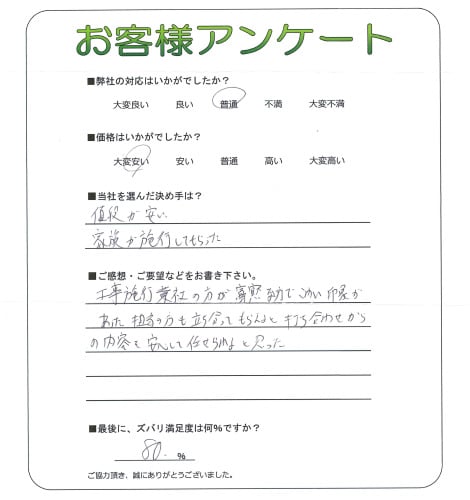 お客様アンケート
■弊社の対応はいかがでしたか？
大変良い 良い 普通 不満 大変不満
■価格はいかがでしたか？
大変安い 安い 普通 高い 大変高い
■当社を選んだ決め手は？
値段が安い
家族が施行してもらった
■ご感想・ご要望などをお書き下さい。
工事施行業社の方が寡黙 で 印象が
あった 担当の方も立ち合ってもらえると打ち合わせから
の内容を安心して任せられると思った
■最後に、ズバリ満足度は何%ですか？
80. %
ご協力頂き、誠にありがとうございました。